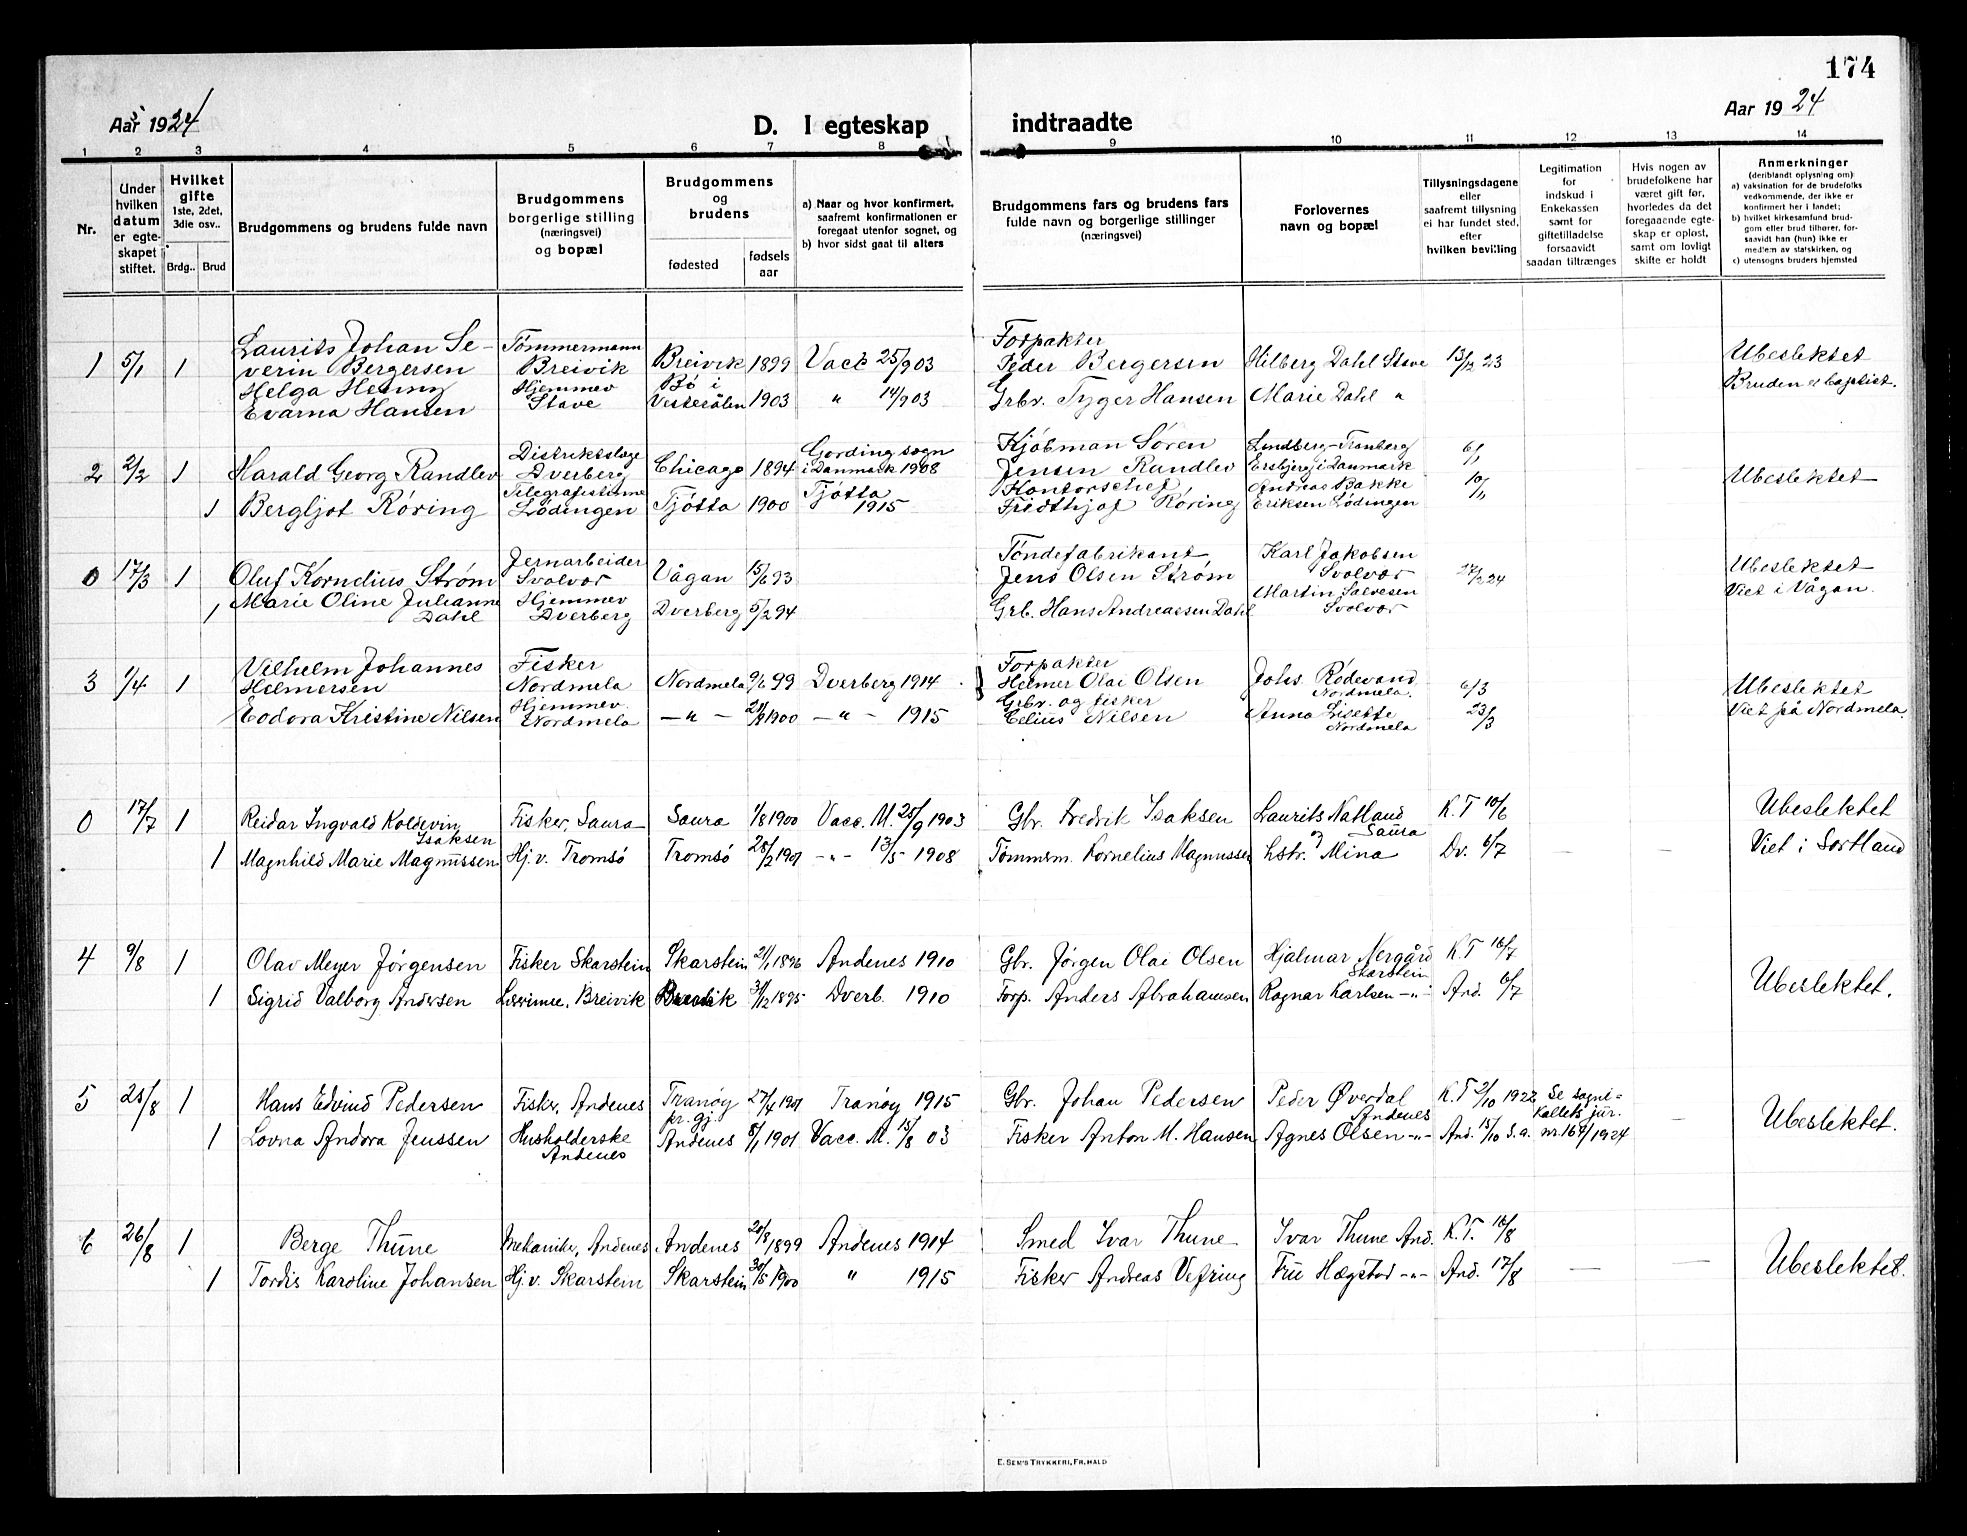 174
Aar 1924
D. I egteskap indtraadte
Aar 1924
1 2 3 4 5 6 7 8 9 10 11 12 13 14
Nr.
Under hvilken datum er egteskapet stiftet.
Hvilket gifte 1ste, 2det, 3die osv..
Brdg.. Brud
Brudgommens og brudens fulde navn
Brudgommens borgerlige stilling (næringsvei) og bopæl
Brudgommens og brudens
fødested
fødselsaar
a) Naar og hvor konfirmert, saafremt konfirmationen er foregaat utenfor sognet, og
b) hvor sidst gaat til alters
Brudgommens fars og brudens fars fulde navn og borgerlige stillinger (næringsvei)
Forlovernes navn og bopæl
Tillysningsdagene eller saafremt tillysning ei har fundet sted, efter hvilken bevilling
Legitimation for indskud i Enkekassen samt for giftetilladelse forsaavidt saadan tiltrænges
Hvis nogen av brudefolkene har været gift før, hvorledes da det foregaaende egteskap er opløst, samt om lovligt skifte er holdt
Anmerkninger
(deriblandt oplysning om)
a) vaksination for de brudefolks vedkommende, der ikke er konfirmert her i landet;
b) hvilket kirkesamfund brudgom eller brud tilhører, forsaavidt han (hun) ikke er medlem av statskirken, og
c) utensogns bruders hjemsted
1 5/1 1 Laurits Johan Severin Bergersen Tømmermann Breivik Breivik 1899 Vacc 25/9 03 Forpakter Peder Bergersen Hilberg Dahl Stave 13/12 23 Ubeslektet
Helga Henny Evarna Hansen Hjemmev Stave Bö i Vesterålen 1903 " 14/9 03 Grbr. Tyger Hansen Marie Dahl " Bruden er baptist.
2 2/2 1 Harald Georg Randlev Distriktslæge Dverberg Chicago 1894 Gording sogn i Danmark 1908 Kjøbman Søren Jensen Randlev Lindberg-Tranberg Esbjerg i Danmark 6/1 Ubeslektet
1 Bergljot Röring Telegrafistinne Lödingen Tjötta 1900 Tjötta 1915 Kontorschef Fridthjof Röring Andreas Bakke Eriksen Lödingen 10/1
0 17/3 1 Oluf Kornelius Strøm Jernarbeider Svolvær Vågan 15/6 93 Tøndefabrikant Jens Olsen Strøm Karl Jakobsen Svolvær 27/2 24 Ubeslektet
1 Marie Oline Julianne Dahl Hjemmev Dverberg Dverberg 5/2 94 Grb. Hans Andreassen Dahl Martin Salvesen Svolvær Viet i Vågan.
3 1/4 1 Vilhelm Johannes Hilmersen Fisker Nordmela Nordmela 9/6 99 Dverberg 1914 Forpakter Helmer Olai Olsen Johs. Rödevand Nordmela. 6/3 Ubeslektet
Eodora Kristine Nilsen Hjemmev. Nordmela — " — 1900 — " — 1915 Grbr. og fisker Celius Nilsen Anna Lisette Nordmela 23/3 Viet på Nordmela.
0 17/7 1 Reidar Ingvald Koldevin Isaksen Fisker, Saura Saura 1/8 1900 Vacc. M. 25/9 1903 Gbr. Fredrik Isaksen Laurits Natland Saura K.T 10/6 Ubeslektet
1 Magnhild Marie Magnussen Hj. v. Tromsö Tromsö 28/2 1901 -"- 13/5 1908 Tömmerm. Kornelius Magnussen og hstr. Mina Dv. 6/7 Viet i Sortland
4 9/8 1 Olav Meyer Jörgensen Fisker Skarstein Skarstein 21/1 1896 Andenes 1910 Gbr. Jörgen Olai Olsen Hjalmar Nergård Skarstein K.T 16/7
1 Sigrid Valborg Andersen Lærerinne, Breivik Breivik 31/12 1895 Dverb. 1910 Forp. Anders Abrahamsen Ragnar Karlsen -"- And. 6/7 Ubeslektet.
5 25/8 1 Hans Edvind Pedersen Fisker, Andenes Tranöy pr. gj. 27/4 1901 Tranöy 1915 Gbr. Johan Pedersen Peder Øverdal Andenes K.T 2/10 1922 Se sognekallets jur.
1 Lovna Andora Jenssen Husholderske Andenes Andenes 8/1 1901 Vacc. M. 15/8 03 Fisker Anton M. Hansen Agnes Olsen -"- And. 15/10 s.a. nr. 167/1924 — Ubeslektet.
6 26/8 1 Berge Thune Mekaniker, Andenes Andenes 20/8 1899 Andenes 1914 Smed Ivar Thune Ivar Thune And. K.T. 16/8
1 Tordis Karoline Johansen Hj. v. Skarstein Skarstein 30/5 1900 " 1915 Fisker Andreas Vefring Fru Hægstad -"- And. 17/8 — — Ubeslektet.
E. Sem's Trykkeri, Fr.hald